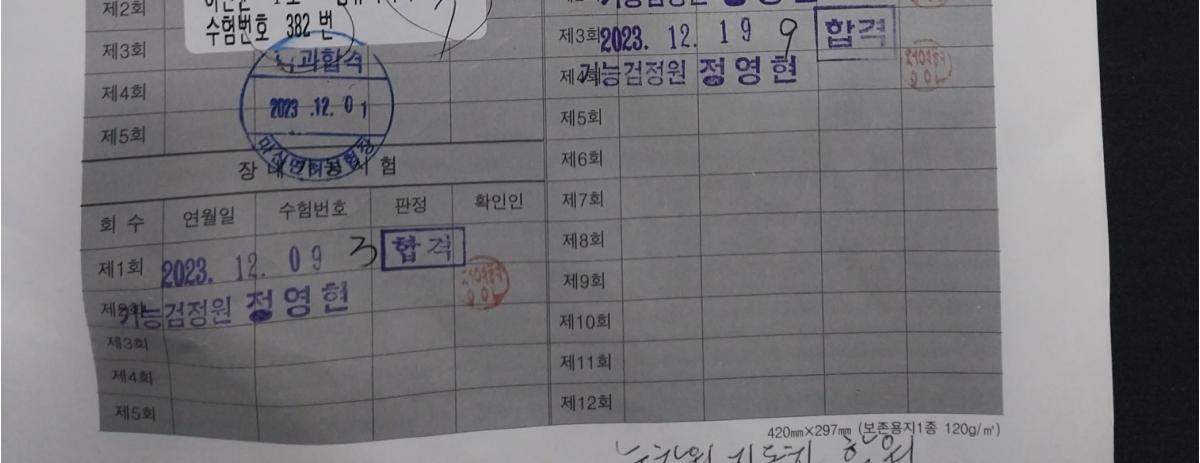 제2회
수험번호 382 번
제3회
과합격
제4회
2023 .12. 01
제5회
장내기능시험
회 수 연월일 수험번호 판정 확인인
제1회 2023. 12. 09 3 합격
기능검정원 정영현
제3회
제4회
제5회
제3회 2023. 12. 19 9 합격
제4회 기능검정원 정영현
제5회
제6회
제7회
제8회
제9회
제10회
제11회
제12회
420㎜×297㎜ (보존용지1종 120g/㎡)